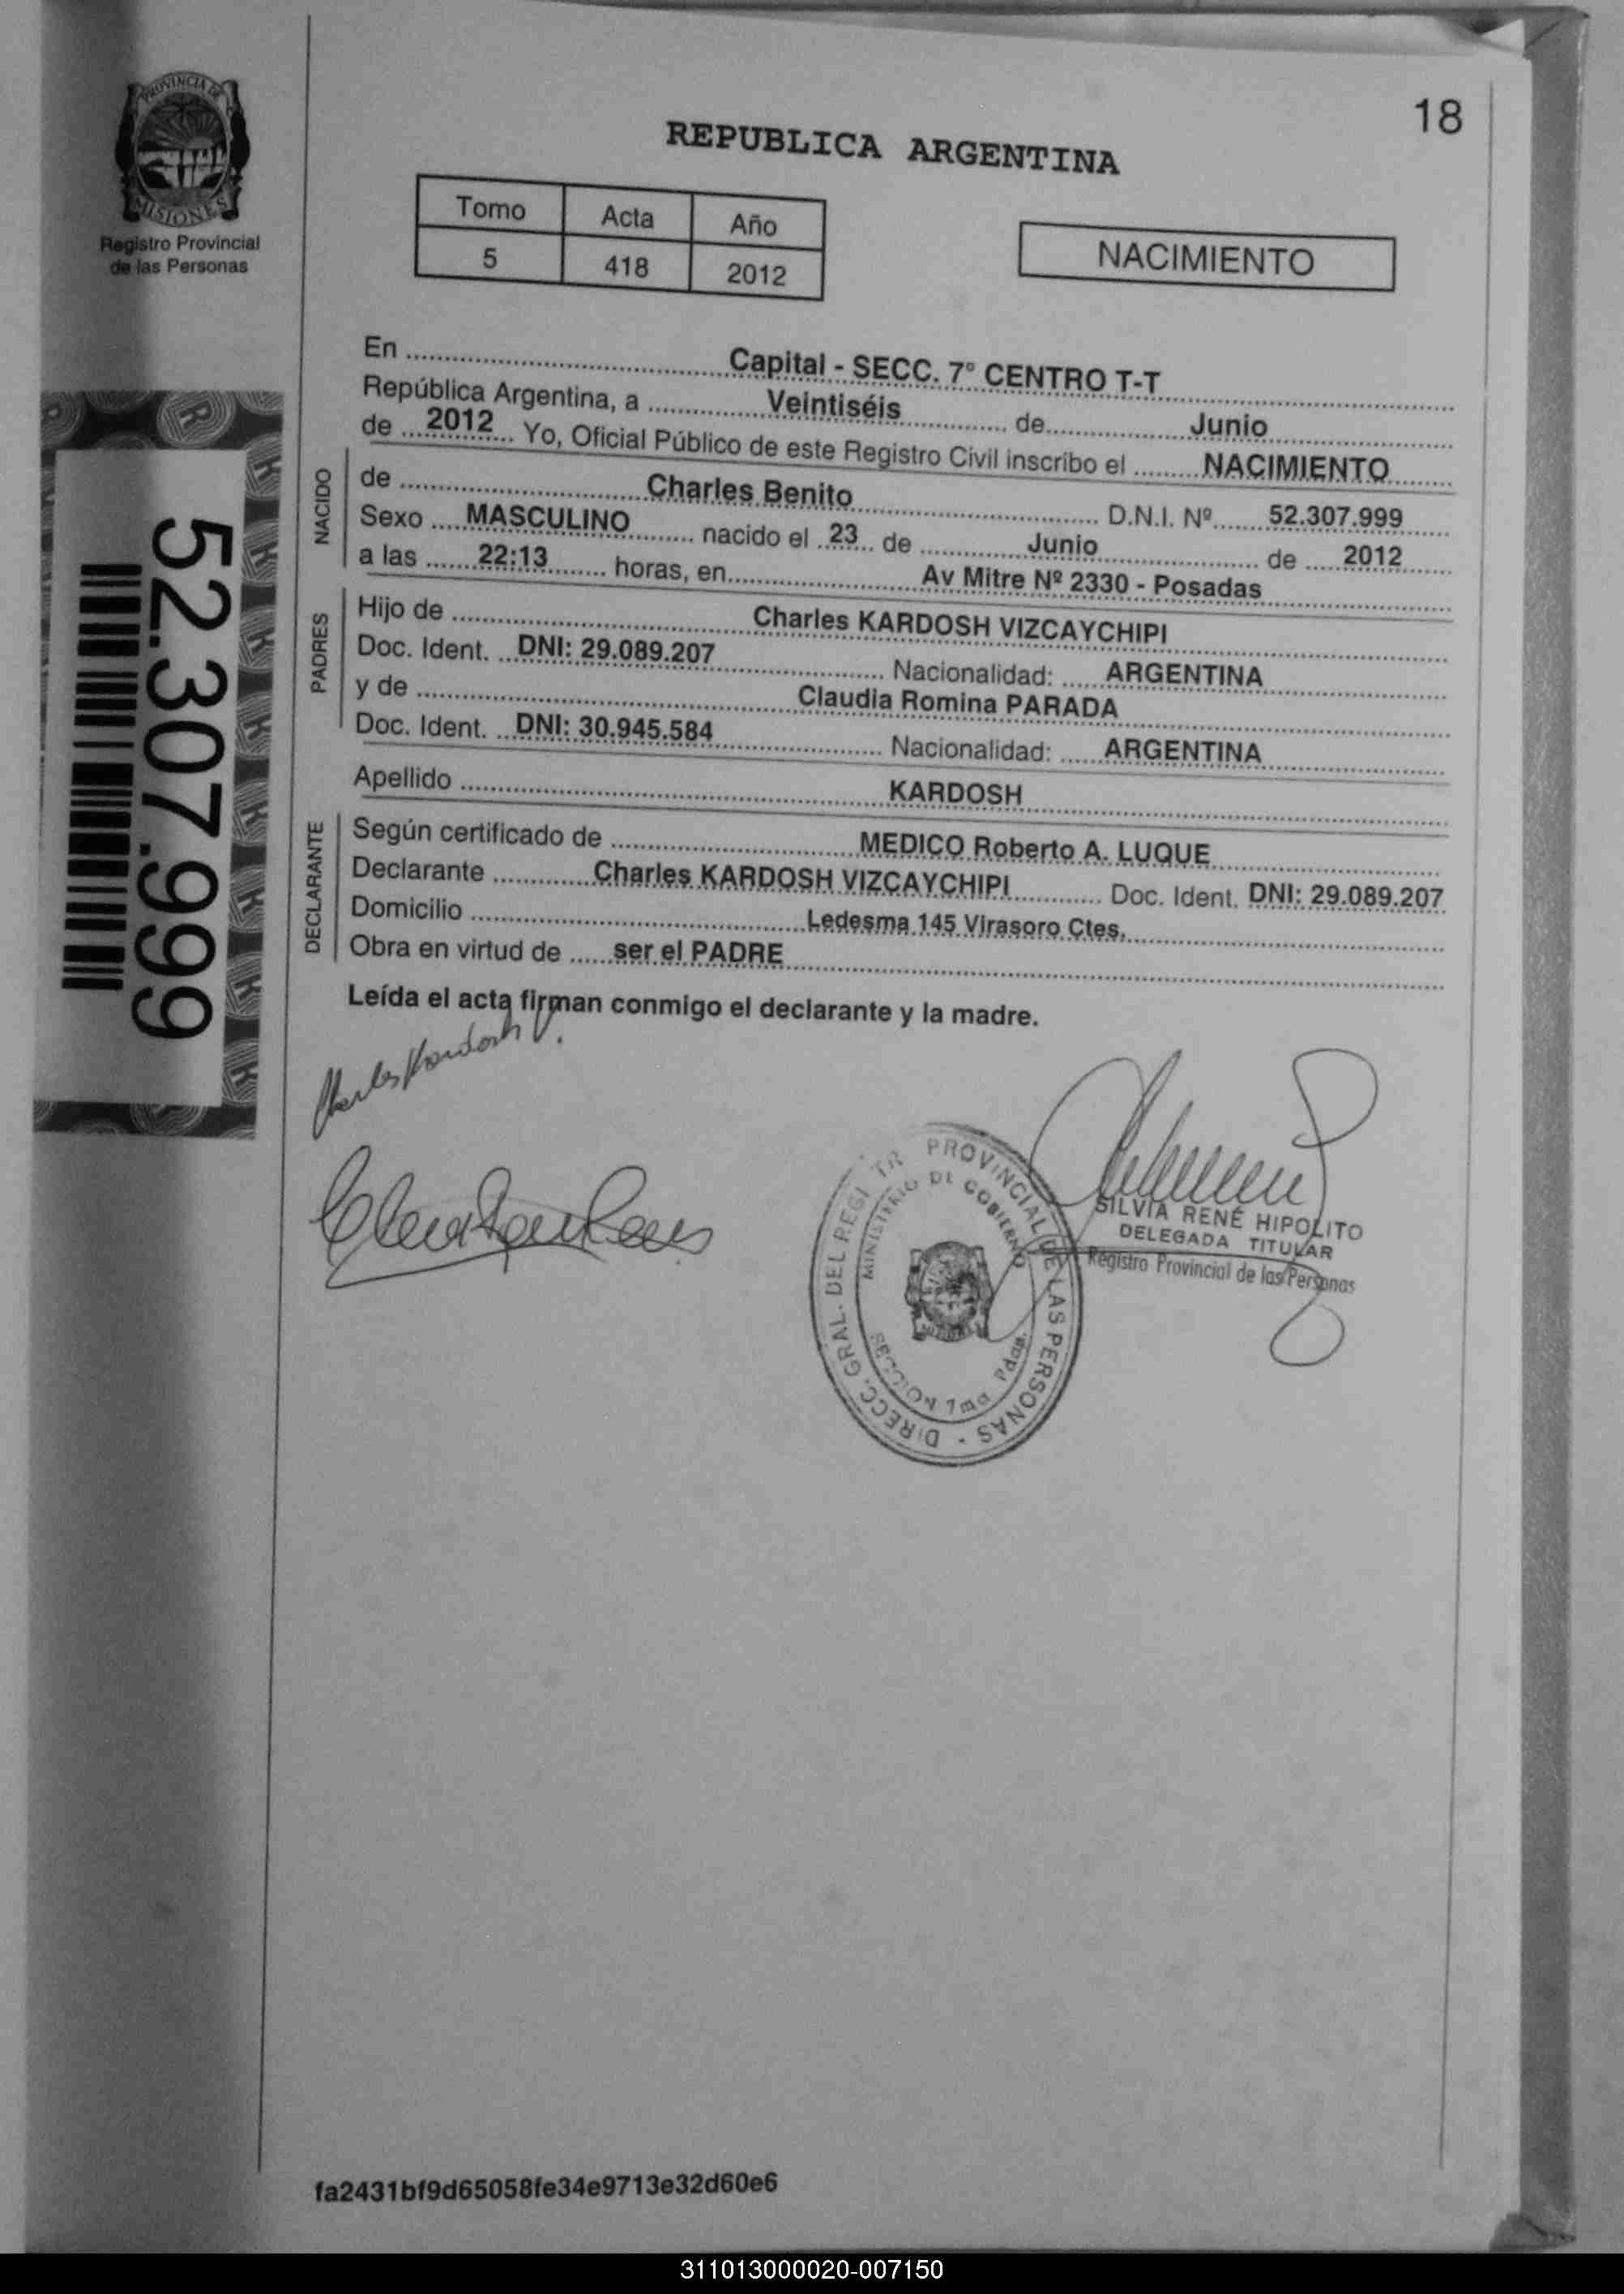 18
PROVINCIA DE
MISIONES
Registro Provincial
de las Personas
REPUBLICA ARGENTINA
Tomo Acta Año
5 418 2012
NACIMIENTO
En Capital - SECC. 7° CENTRO T-T
República Argentina, a Veintiséis de Junio
de 2012 Yo, Oficial Público de este Registro Civil inscribo el NACIMIENTO
NACIDO
de Charles Benito D.N.I. Nº 52.307.999
Sexo MASCULINO nacido el 23 de Junio de 2012
a las 22:13 horas, en Av Mitre Nº 2330 - Posadas
PADRES
Hijo de Charles KARDOSH VIZCAYCHIPI
Doc. Ident. DNI: 29.089.207 Nacionalidad: ARGENTINA
y de Claudia Romina PARADA
Doc. Ident. DNI: 30.945.584 Nacionalidad: ARGENTINA
Apellido KARDOSH
DECLARANTE
Según certificado de MEDICO Roberto A. LUQUE
Declarante Charles KARDOSH VIZCAYCHIPI Doc. Ident. DNI: 29.089.207
Domicilio Ledesma 145 Virasoro Ctes.
Obra en virtud de ser el PADRE
Leída el acta firman conmigo el declarante y la madre.
52.307.999
Charles Kardosh V.
DIRECC. GRAL. DEL REGI TR PROVINCIAL DE LAS PERSONAS -
MINISTERIO DE GOBIERNO
SECCION 7ma Pdas.
SILVIA RENÉ HIPOLITO
DELEGADA TITULAR
Registro Provincial de las Personas
fa2431bf9d65058fe34e9713e32d60e6
311013000020-007150